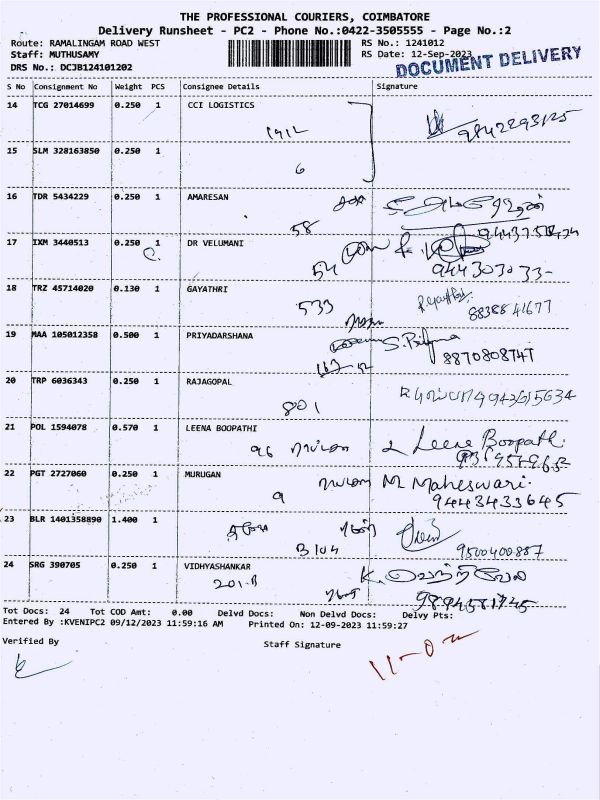 THE PROFESSIONAL COURIERS, COIMBATORE
Delivery Runsheet - PC2 - Phone No.:0422-3505555 - Page No.:2
Route: RAMALINGAM ROAD WEST RS No.: 1241012
Staff: MUTHUSAMY RS Date: 12-Sep-2023
DRS No.: DCJB124101202
DOCUMENT DELIVERY
S No Consignment No Weight PCS Consignee Details Signature
14 TCG 27014699 0.250 1 CCI LOGISTICS
1912
15 SLM 328163850 0.250 1
6
16 TDR 5434229 0.250 1 AMARESAN
58
17 IXM 3440513 0.250 1 DR VELUMANI
54 944303033-
18 TRZ 45714020 0.130 1 GAYATHRI
533 8838841677
19 MAA 105012358 0.500 1 PRIYADARSHANA
S. Priya
8870808747
20 TRP 6036343 0.250 1 RAJAGOPAL
801
21 POL 1594078 0.570 1 LEENA BOOPATHI
96 Leena Boopathi
22 PGT 2727060 0.250 1 MURUGAN
M Maheswari.
9 9443433645
23 BLR 1401358890 1.400 1
B104 9500400887
24 SRG 390705 0.250 1 VIDHYASHANKAR
201-B K. வெற்றிவேல்
9894581745
Tot Docs: 24 Tot COD Amt: 0.00 Delvd Docs: Non Delvd Docs: Delvy Pts:
Entered By :KVENIPC2 09/12/2023 11:59:16 AM Printed On: 12-09-2023 11:59:27
Verified By Staff Signature